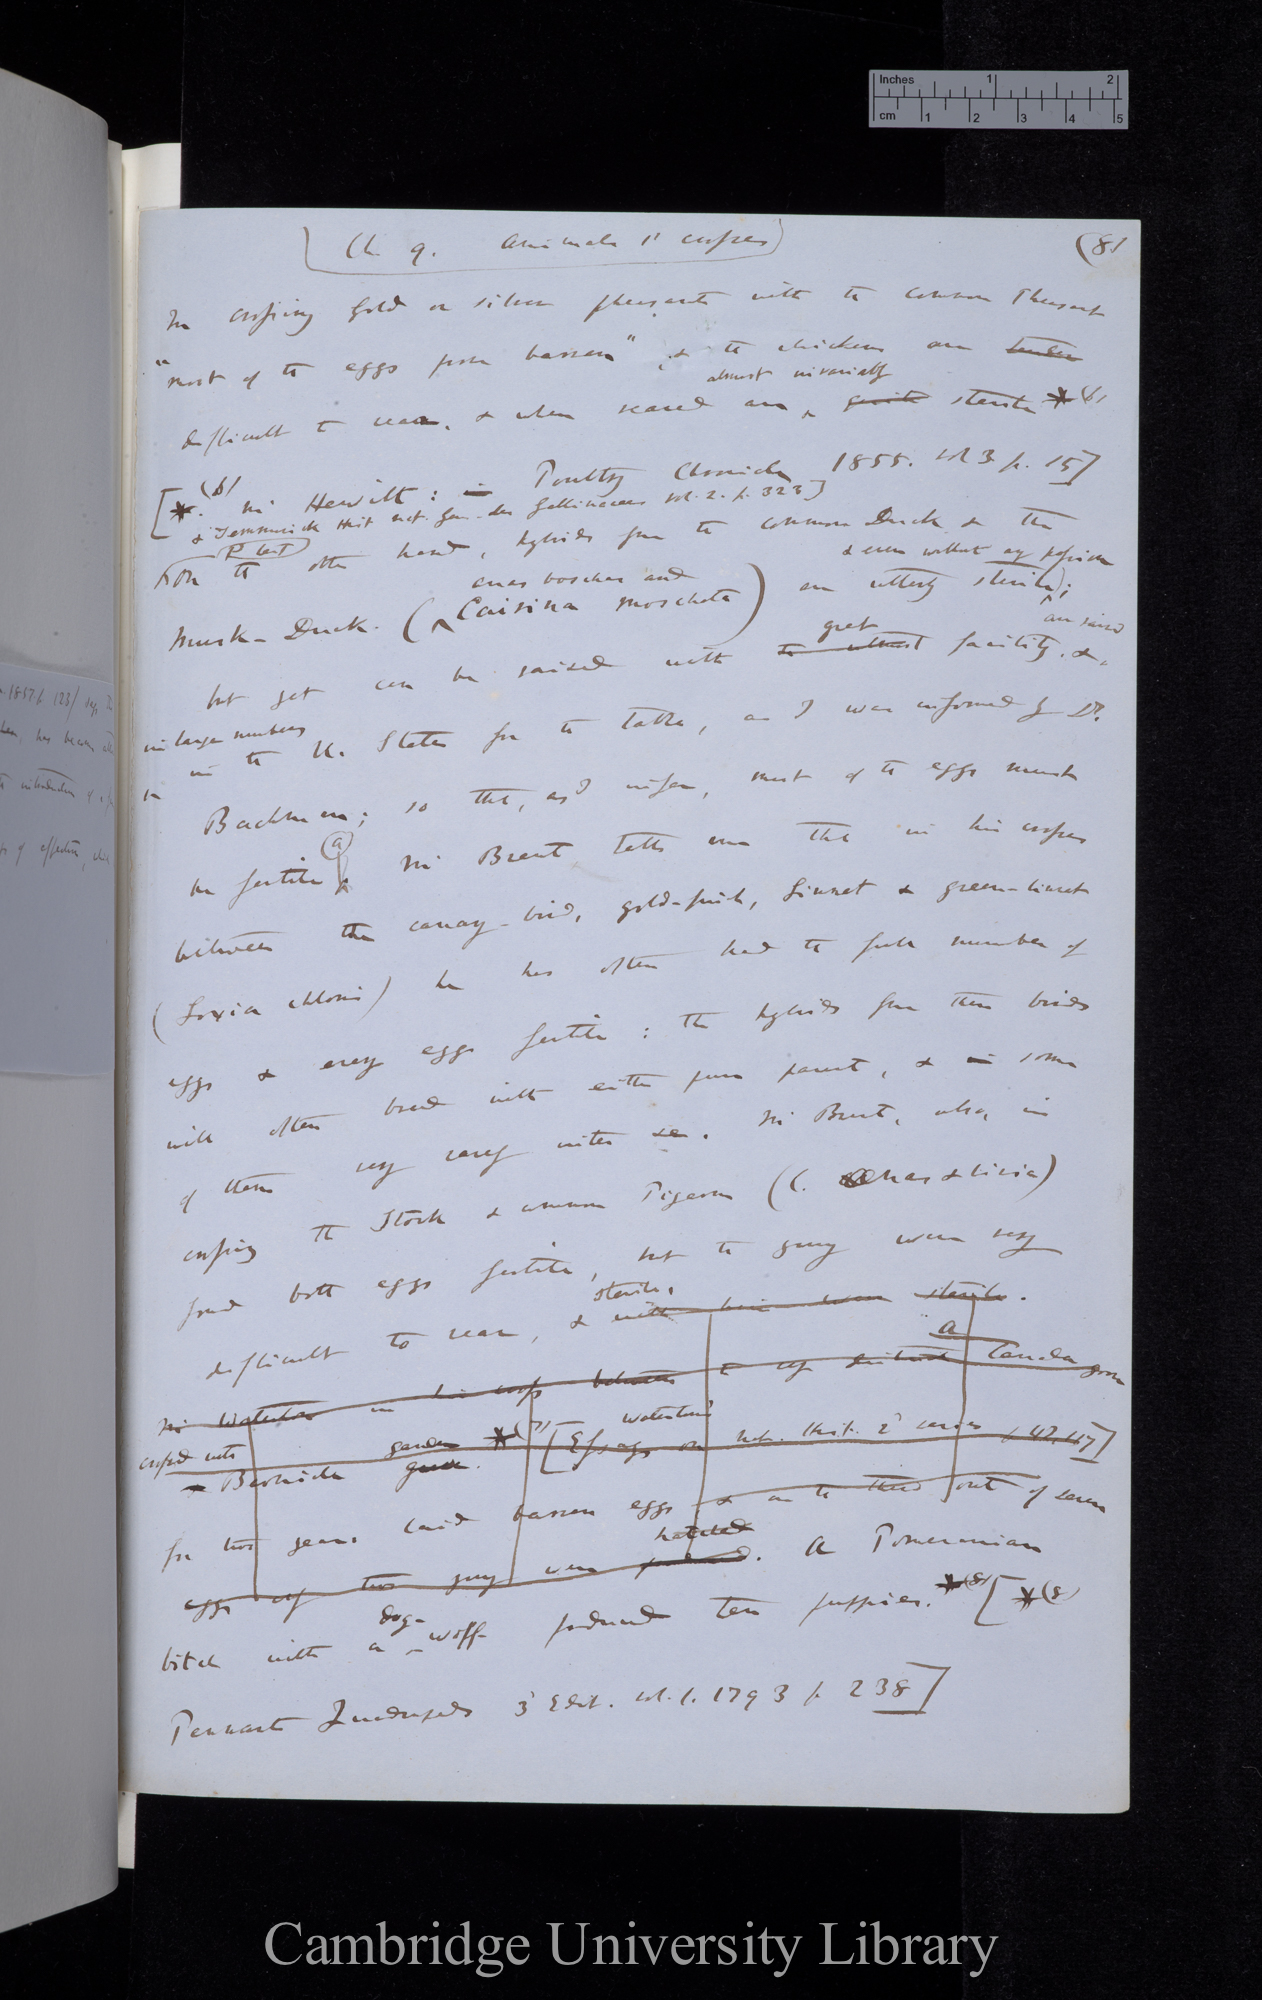 Inches 1 2
cm 1 2 3 4 5
Ch 9. Animals 1st crosses
(81
In crossing Gold or silver pheasants with the common Pheasant
"most of the eggs prove barren", & the chickens are tender
almost invariably
difficult to rear, & when reared are quite sterile *(6)
[*(6) Mr Hewitt: in Poultry Chronicle 1855. vol 3 p. 15]
& Temminck Hist nat. gen. des Gallinaces vol. 2. p. 323]
On the other hand, hybrids from the common Duck & the
& even without any passion
anas boschas and
Musk-Duck. (Cairina moschata) are utterly sterile;
are raised
great
but yet can be raised with the utmost facility, &
in large numbers
in the U. States for the table, as I was informed by Dr.
Bachman; so that, as I infer, most of the eggs must
(a)
be fertile. Mr Brent tells me that in his crosses
between the canary-bird, gold-finch, Linnet & green-linnet
(Loxia chloris) he has often had the full number of
eggs & every eggs fertile: the hybrids from these birds
will often breed with either pure parent, & in some
of them very rarely inter se. Mr Brent, also, in
crossing the Stock & common Pigeon (C. oenas & livia)
found both eggs fertile, but the young were very
sterile.
difficult to rear, & with him were sterile.
a
Mr Waterton in his cross between the Canada goose
crossed with
gander *(7) [Waterton's Essays on Nat. Hist. 2d series p 42, 117]
Bernicle goose.
for two years laid barren eggs & on the third out of seven
hatched
eggs only two young were produced. A Pomeranian
dog-
bitch with a wolf produced ten puppies. *(8) [*(8)
Pennant Quadrupeds 3d Edit. vol. 1. 1793 p. 238]
Cambridge University Library